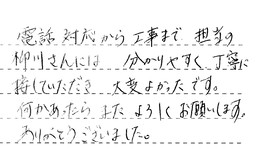 電話対応から工事まで 担当の
柳川さんには 分かりやすく丁寧に
接していただき 大変よかったです。
何かあったら またよろしくお願いします。
ありがとうございました。